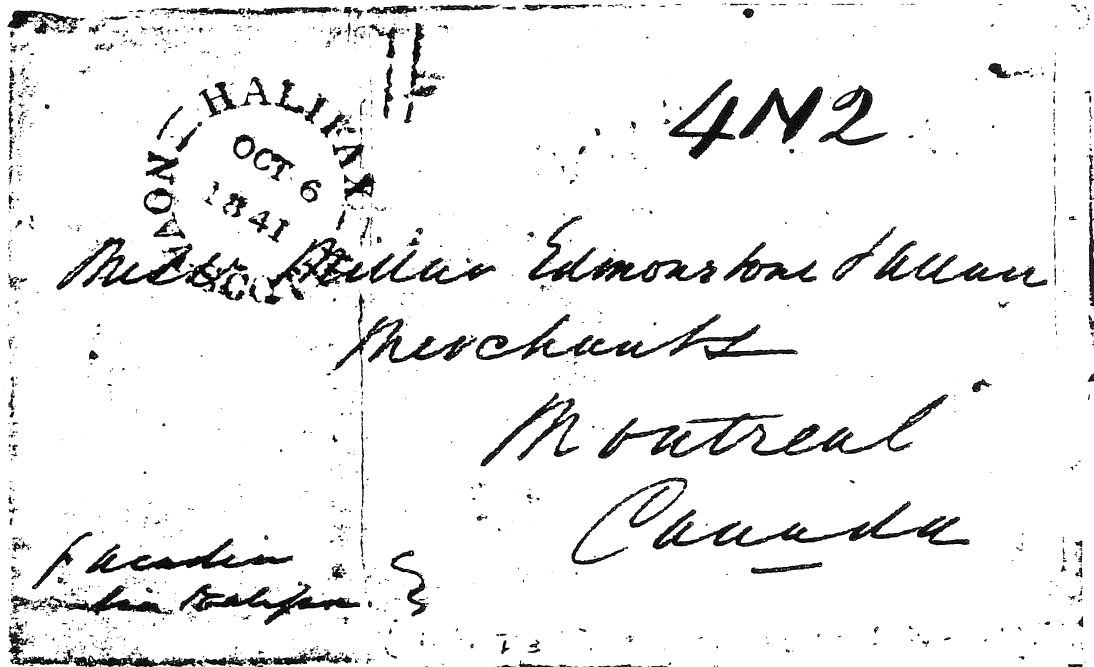 4N2
HALIFAX
OCT 6
1841
NOVA SCOTIA
Messrs Millar Edmonstone & Allan
Merchants
Montreal
Canada
p Acadia
via Halifax